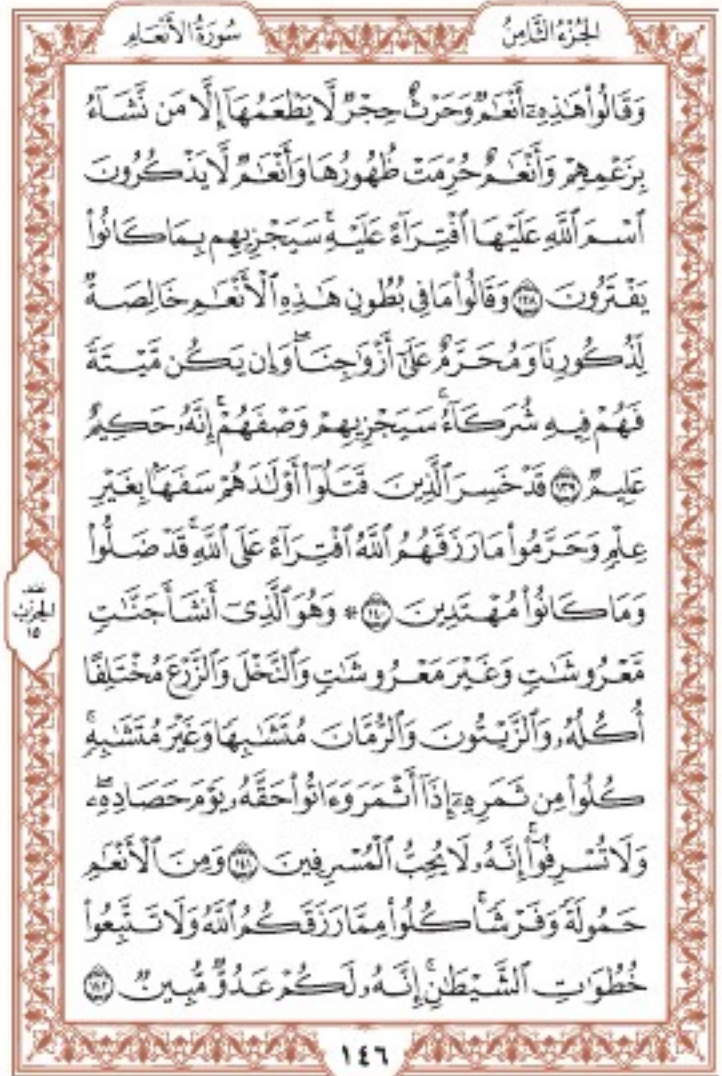 الجُزْءُ الثَّامِنُ
سُورَةُ الأَنْعَامِ
وَقَالُوا۟ هَـٰذِهِۦٓ أَنْعَـٰمٌ وَحَرْثٌ حِجْرٌ لَّا يَطْعَمُهَآ إِلَّا مَن نَّشَآءُ
بِزَعْمِهِمْ وَأَنْعَـٰمٌ حُرِّمَتْ ظُهُورُهَا وَأَنْعَـٰمٌ لَّا يَذْكُرُونَ
ٱسْمَ ٱللَّهِ عَلَيْهَا ٱفْتِرَآءً عَلَيْهِ ۚ سَيَجْزِيهِم بِمَا كَانُوا۟
يَفْتَرُونَ ١٣٨ وَقَالُوا۟ مَا فِى بُطُونِ هَـٰذِهِ ٱلْأَنْعَـٰمِ خَالِصَةٌ
لِّذُكُورِنَا وَمُحَرَّمٌ عَلَىٰٓ أَزْوَٰجِنَا ۖ وَإِن يَكُن مَّيْتَةً
فَهُمْ فِيهِ شُرَكَآءُ ۚ سَيَجْزِيهِمْ وَصْفَهُمْ ۚ إِنَّهُۥ حَكِيمٌ
عَلِيمٌ ١٣٩ قَدْ خَسِرَ ٱلَّذِينَ قَتَلُوٓا۟ أَوْلَـٰدَهُمْ سَفَهًۢا بِغَيْرِ
عِلْمٍ وَحَرَّمُوا۟ مَا رَزَقَهُمُ ٱللَّهُ ٱفْتِرَآءً عَلَى ٱللَّهِ ۚ قَدْ ضَلُّوا۟
وَمَا كَانُوا۟ مُهْتَدِينَ ١٤٠ ۞ وَهُوَ ٱلَّذِىٓ أَنشَأَ جَنَّـٰتٍ
نصف
الحزب
١٥
مَّعْرُوشَـٰتٍ وَغَيْرَ مَعْرُوشَـٰتٍ وَٱلنَّخْلَ وَٱلزَّرْعَ مُخْتَلِفًا
أُكُلُهُۥ وَٱلزَّيْتُونَ وَٱلرُّمَّانَ مُتَشَـٰبِهًا وَغَيْرَ مُتَشَـٰبِهٍ ۚ
كُلُوا۟ مِن ثَمَرِهِۦٓ إِذَآ أَثْمَرَ وَءَاتُوا۟ حَقَّهُۥ يَوْمَ حَصَادِهِۦ ۖ
وَلَا تُسْرِفُوٓا۟ ۚ إِنَّهُۥ لَا يُحِبُّ ٱلْمُسْرِفِينَ ١٤١ وَمِنَ ٱلْأَنْعَـٰمِ
حَمُولَةً وَفَرْشًا ۚ كُلُوا۟ مِمَّا رَزَقَكُمُ ٱللَّهُ وَلَا تَتَّبِعُوا۟
خُطُوَٰتِ ٱلشَّيْطَـٰنِ ۚ إِنَّهُۥ لَكُمْ عَدُوٌّ مُّبِينٌ ١٤٢
١٤٦